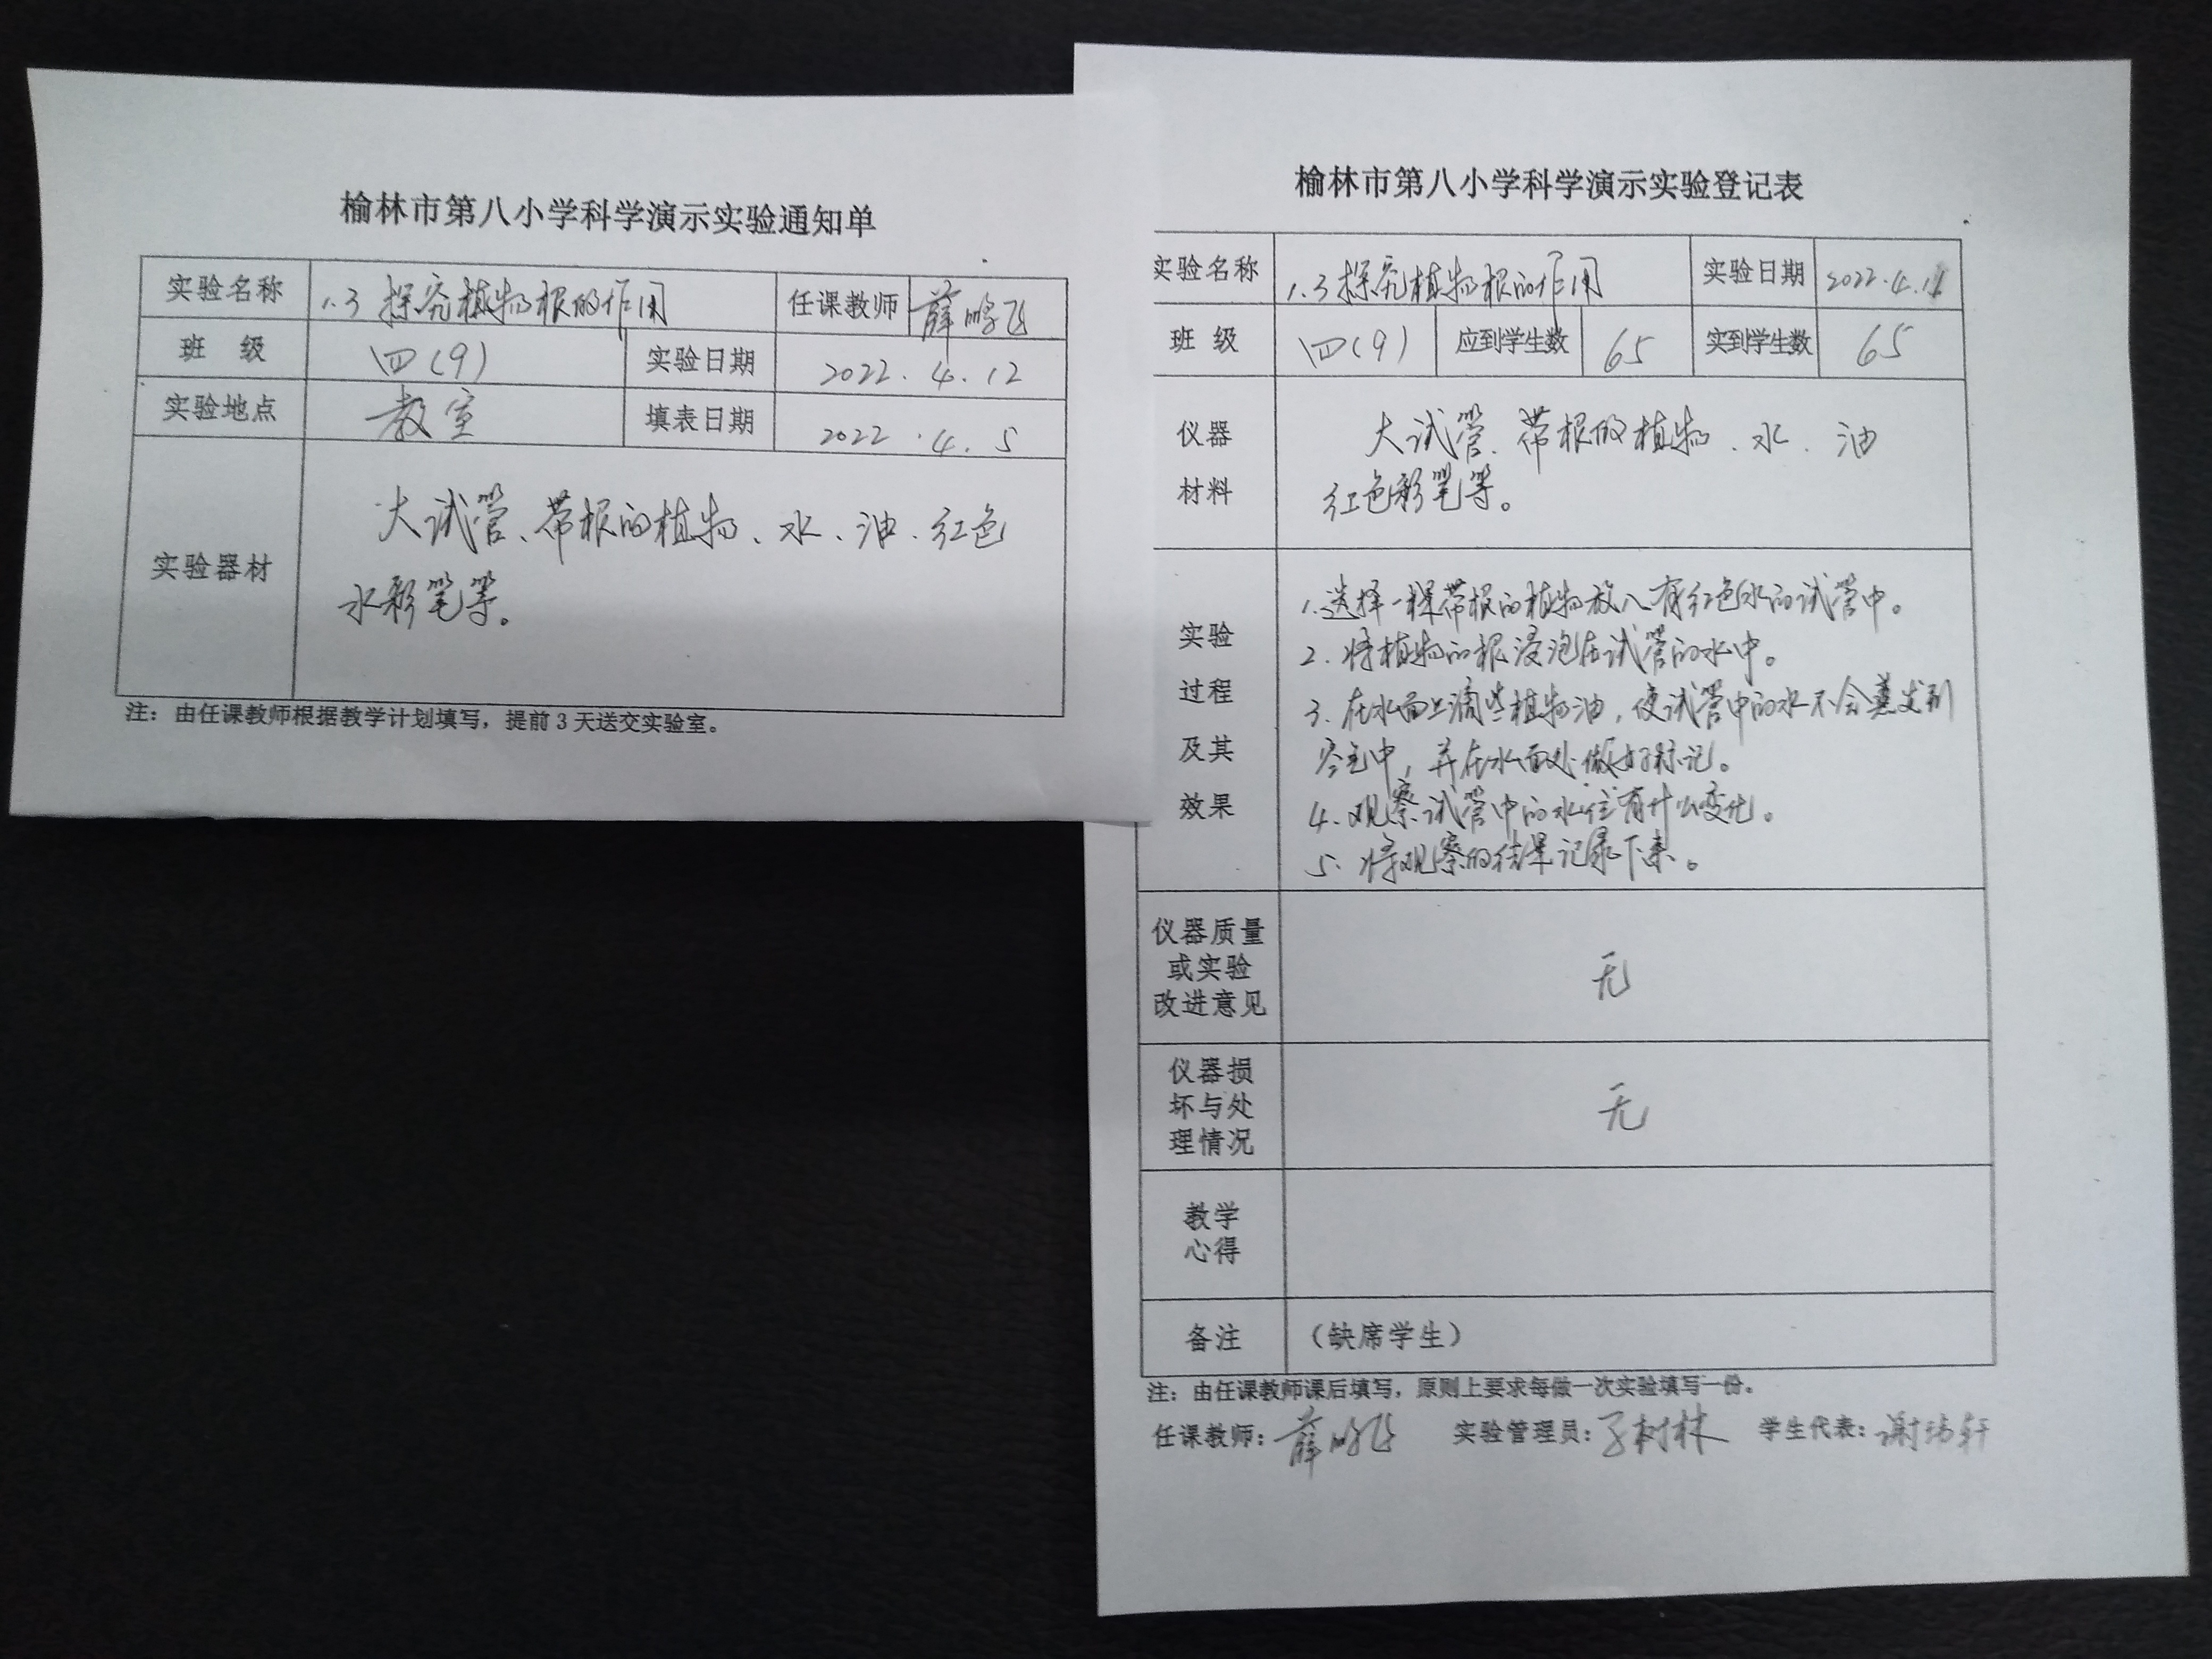 榆林市第八小学科学演示实验通知单
实验名称 1.3 探究植物根的作用 任课教师 薛鹏飞
班 级 四(9) 实验日期 2022.4.12
实验地点 教室 填表日期 2022.4.5
实验器材 大试管、带根的植物、水、油、红色
水彩笔等。
注：由任课教师根据教学计划填写，提前3天送交实验室。
榆林市第八小学科学演示实验登记表
实验名称 1.3 探究植物根的作用 实验日期 2022.4.
班 级 四(9) 应到学生数 65 实到学生数 65
仪器 大试管、带根的植物、水、油
材料 红色彩笔等。
实验
过程
及其
效果
1.选择一棵带根的植物放入有红色水的试管中。
2.将植物的根浸泡在试管的水中。
3.在水面上滴些植物油，使试管中的水不会蒸发到
空气中，并在水面处做好标记。
4.观察试管中的水位有什么变化。
5.将观察的结果记录下来。
仪器质量
或实验
改进意见
无
仪器损
坏与处
理情况
无
教学
心得
备注 （缺席学生）
注：由任课教师课后填写，原则上要求每做一次实验填写一份。
任课教师：薛鹏飞 实验管理员： 树林 学生代表：谢 轩